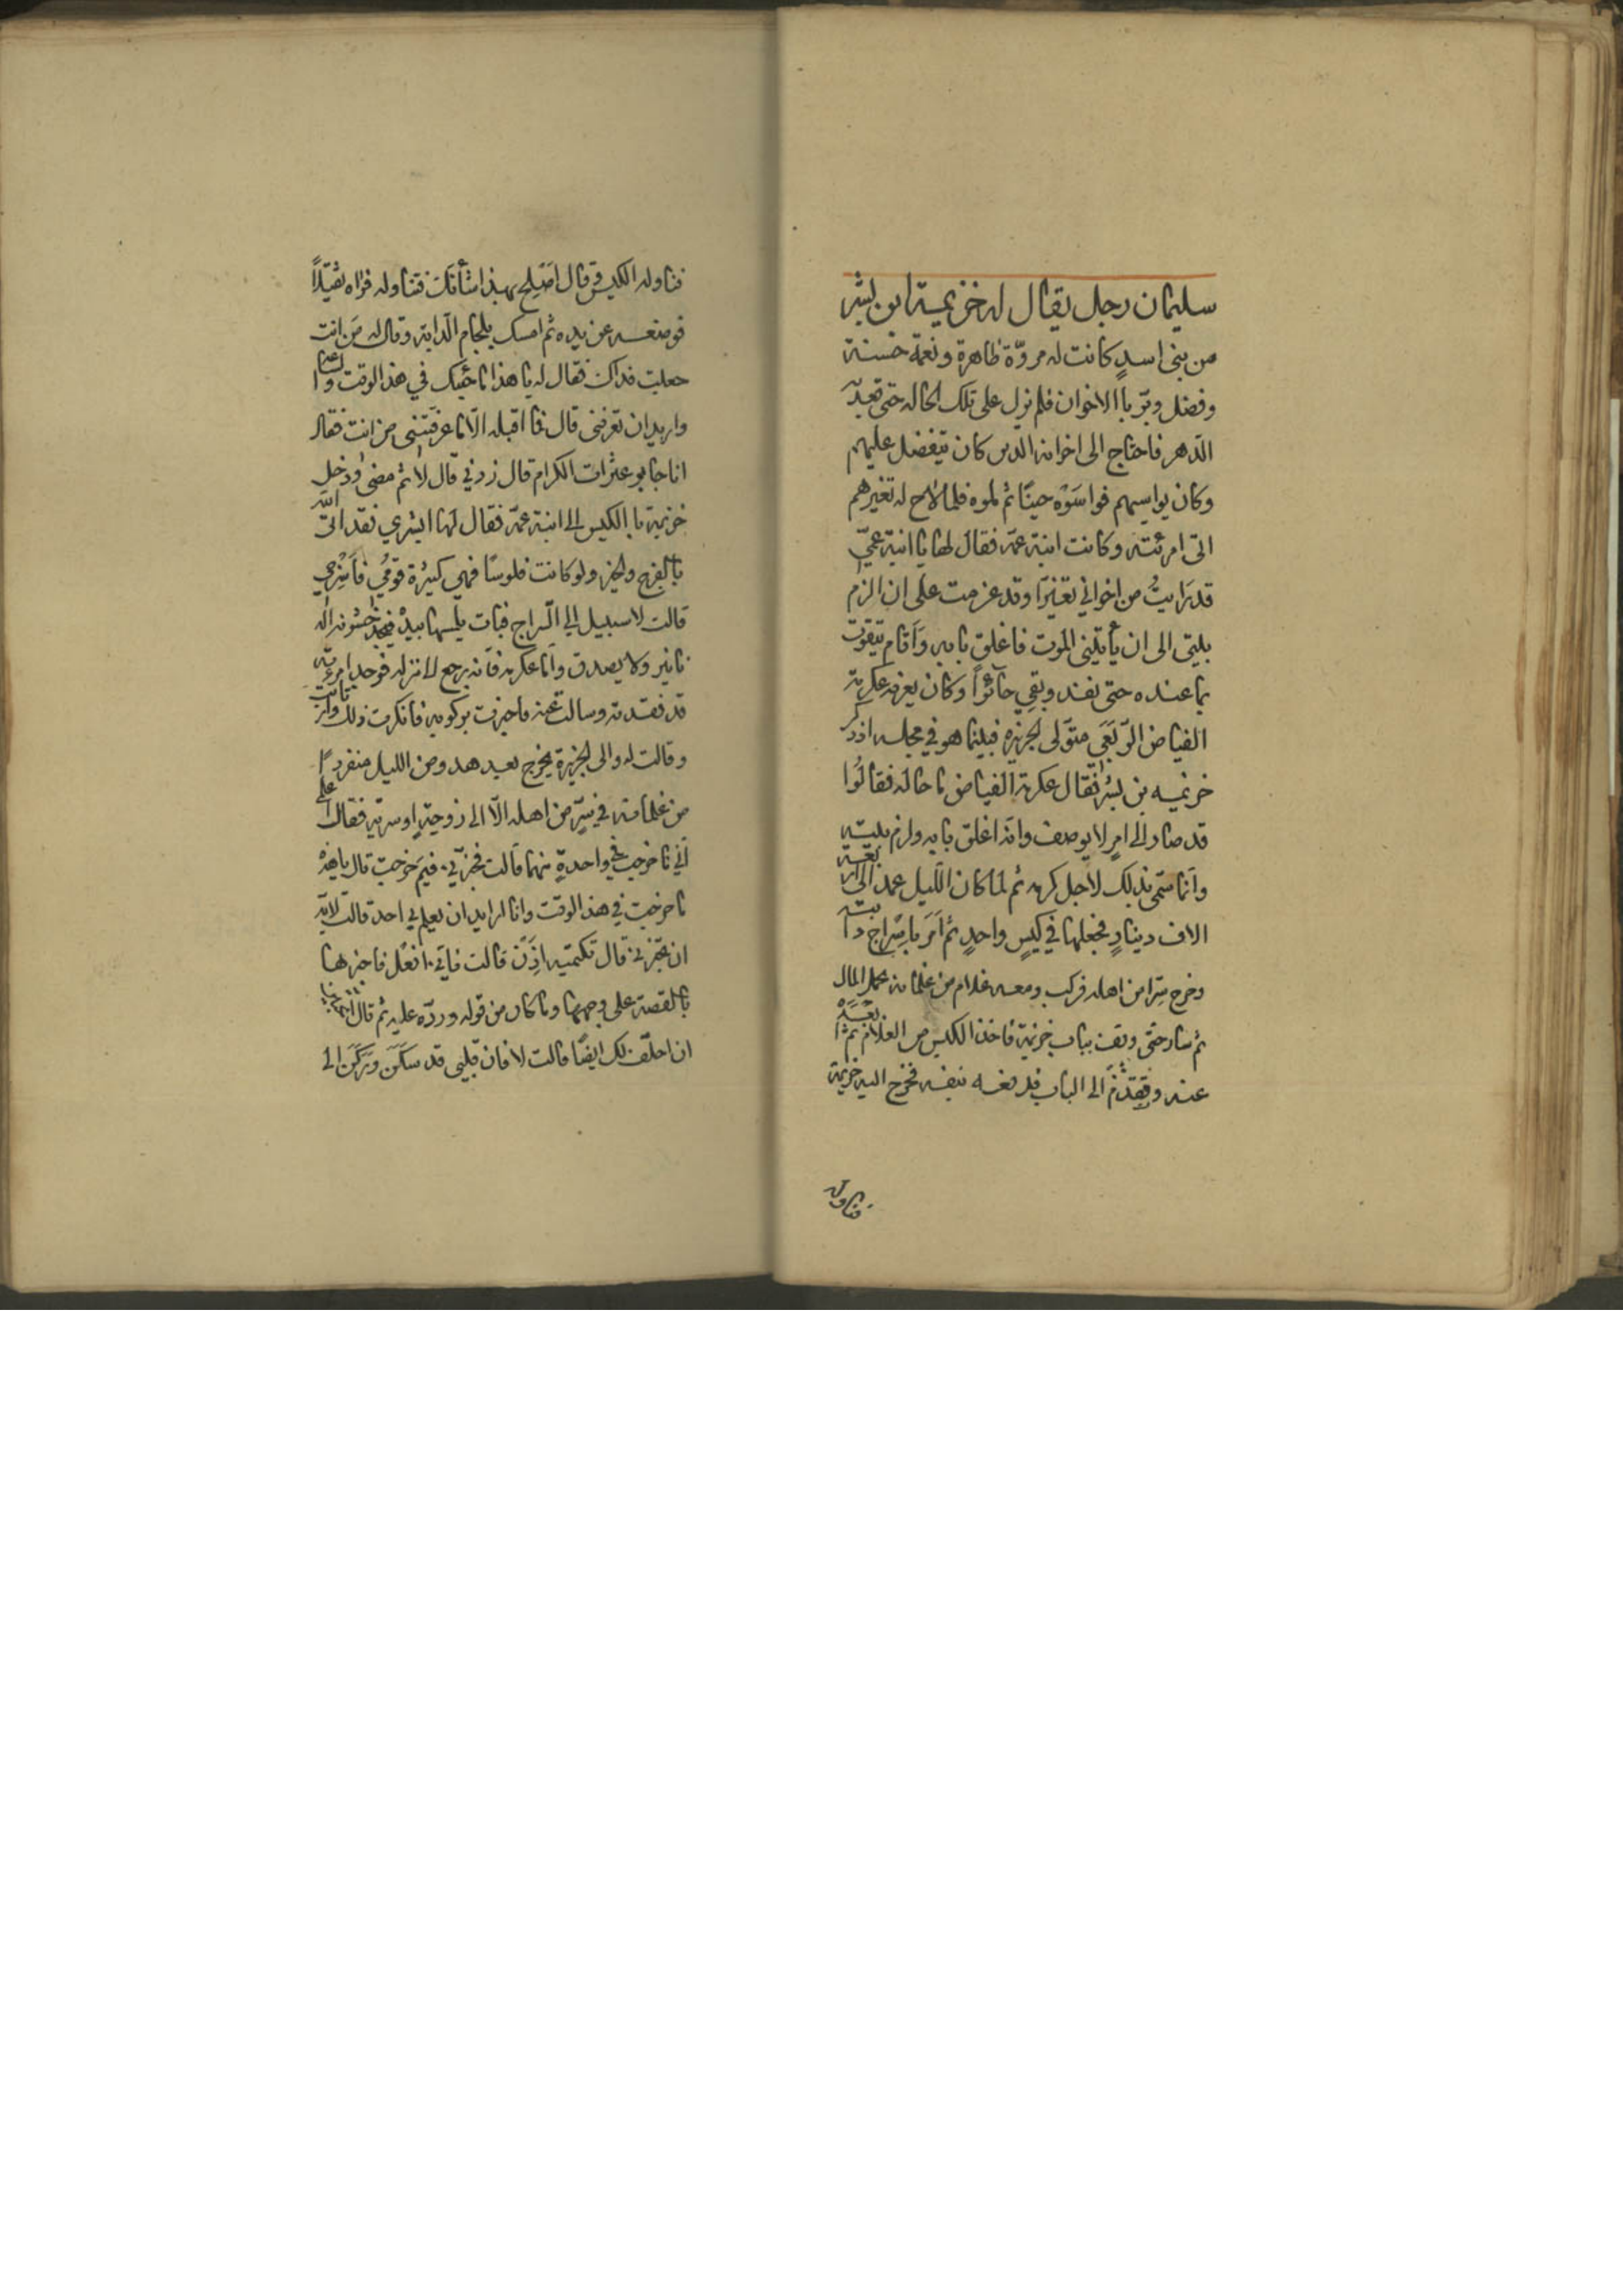 سليمان رجل يقال له خزيمة ابن بشر
من بنى اسدٍ كانت له مروّة ظاهرة ونعمة حسنة
وفضل وبرّ باالاخوان فلم نزل على تلك الحاله حتى قعد به
الدّهر فاحتاج الى اخوانه الدين كان يتفضل عليهم
وكان يواسيهم فواسَوْه حينًا ثم لموه فلما لاح له تغيرهم
اتى امرئته وكانت ابنة عمّه فقال لها يا ابنة عمّى
قد رَايتُ من اخواني تغيّرًا وقد عزمت على ان الزم
بليتى الى ان يأتينى الموت فاغلق بابه وَاَقام يتقوت
بما عنده حتى نفد وبقي حائرًا وكان يعرفه عكرمة
الفياض الرّبَعَي متوّلى الجزيرة فبينما هو في مجلسه اذ ذكر
خزيمه بن بشر فقال عكرمة الفياض ما حاله فقالُوا
قد صار الى امرٍ لا يوصف وانه اغلق بابه ولزم بيته
وانما سمّى بذلك لاجل كرمه ثم لما كان اللّيل عمد الى اربعة
الاف دينارٍ فجعلها في كيسٍ واحدٍ ثم اَمَر باِسْراج دابته
وخرج سِرّا من اهله فركب ومعه غلام من غلمانه يحمل المال
ثم سار حتى وقف بباب خزيمة فاخذ الكيس من الغلام ثم ابعده
عنه وتقدّم الى الباب فدفعه بنفسه فخرج اليه خزيمة
فناوله
فناوله الكيس وقال اصلِح بهذا شأنك فتناوله فراه ثقيلًا
فوضعه عن يده ثم امسك بلجام الدابة وقال له مَن انت
جعلت فداك فقال له يا هذا ما جئتك في هذا الوقت والساعة
واريد ان تعرفنى قال فما اقبله الّا ما عرفتنى من انت فقال
انا جابر عثرات الكرام قال زدني قال لا ثم مضى ودخل
خزيمة با الكيس الى ابنة عمّه فقال لها ابشري فقد اتى اللّه
باالفرج والخير ولو كانت فلوسًا فهي كثيرة قومُي فاَسْرِجي
قالت لا سبيل الى السّراج فبات يلمسها بيده فيجد خشونة الد
نانير ولا يصدق واَما عكرمة فانه رجع الا منزله فوجد امرءته
قد فقدته وسالت عنه فاخبرت بركوبه فانكرت ذلك وارتابت
وقالت له والى الجزيرة يخرج بعد هدو من الليل منفردًا
من غلمانه في سِرٍّ من اهله الّا الى زوجةٍ او سرية فقال اعلمى
اَني ما خرجت في واحدةٍ منهما قالت فخبّرني فيم خرجت قال يا هذه
ما خرجت في هذا الوقت وانا اريد ان يعلم بي احد قالت لا بدّ
ان تخبرني قال تكتميه اذَنْ قالت فاني افعل فاخبرها
باالقصة على وجهها وما كان من قوله وردّه عليه ثم قال اتحبّين
ان احلف لك ايضًا قالت لا فان قلبى قد سكَنَ ورَكَنَ الى